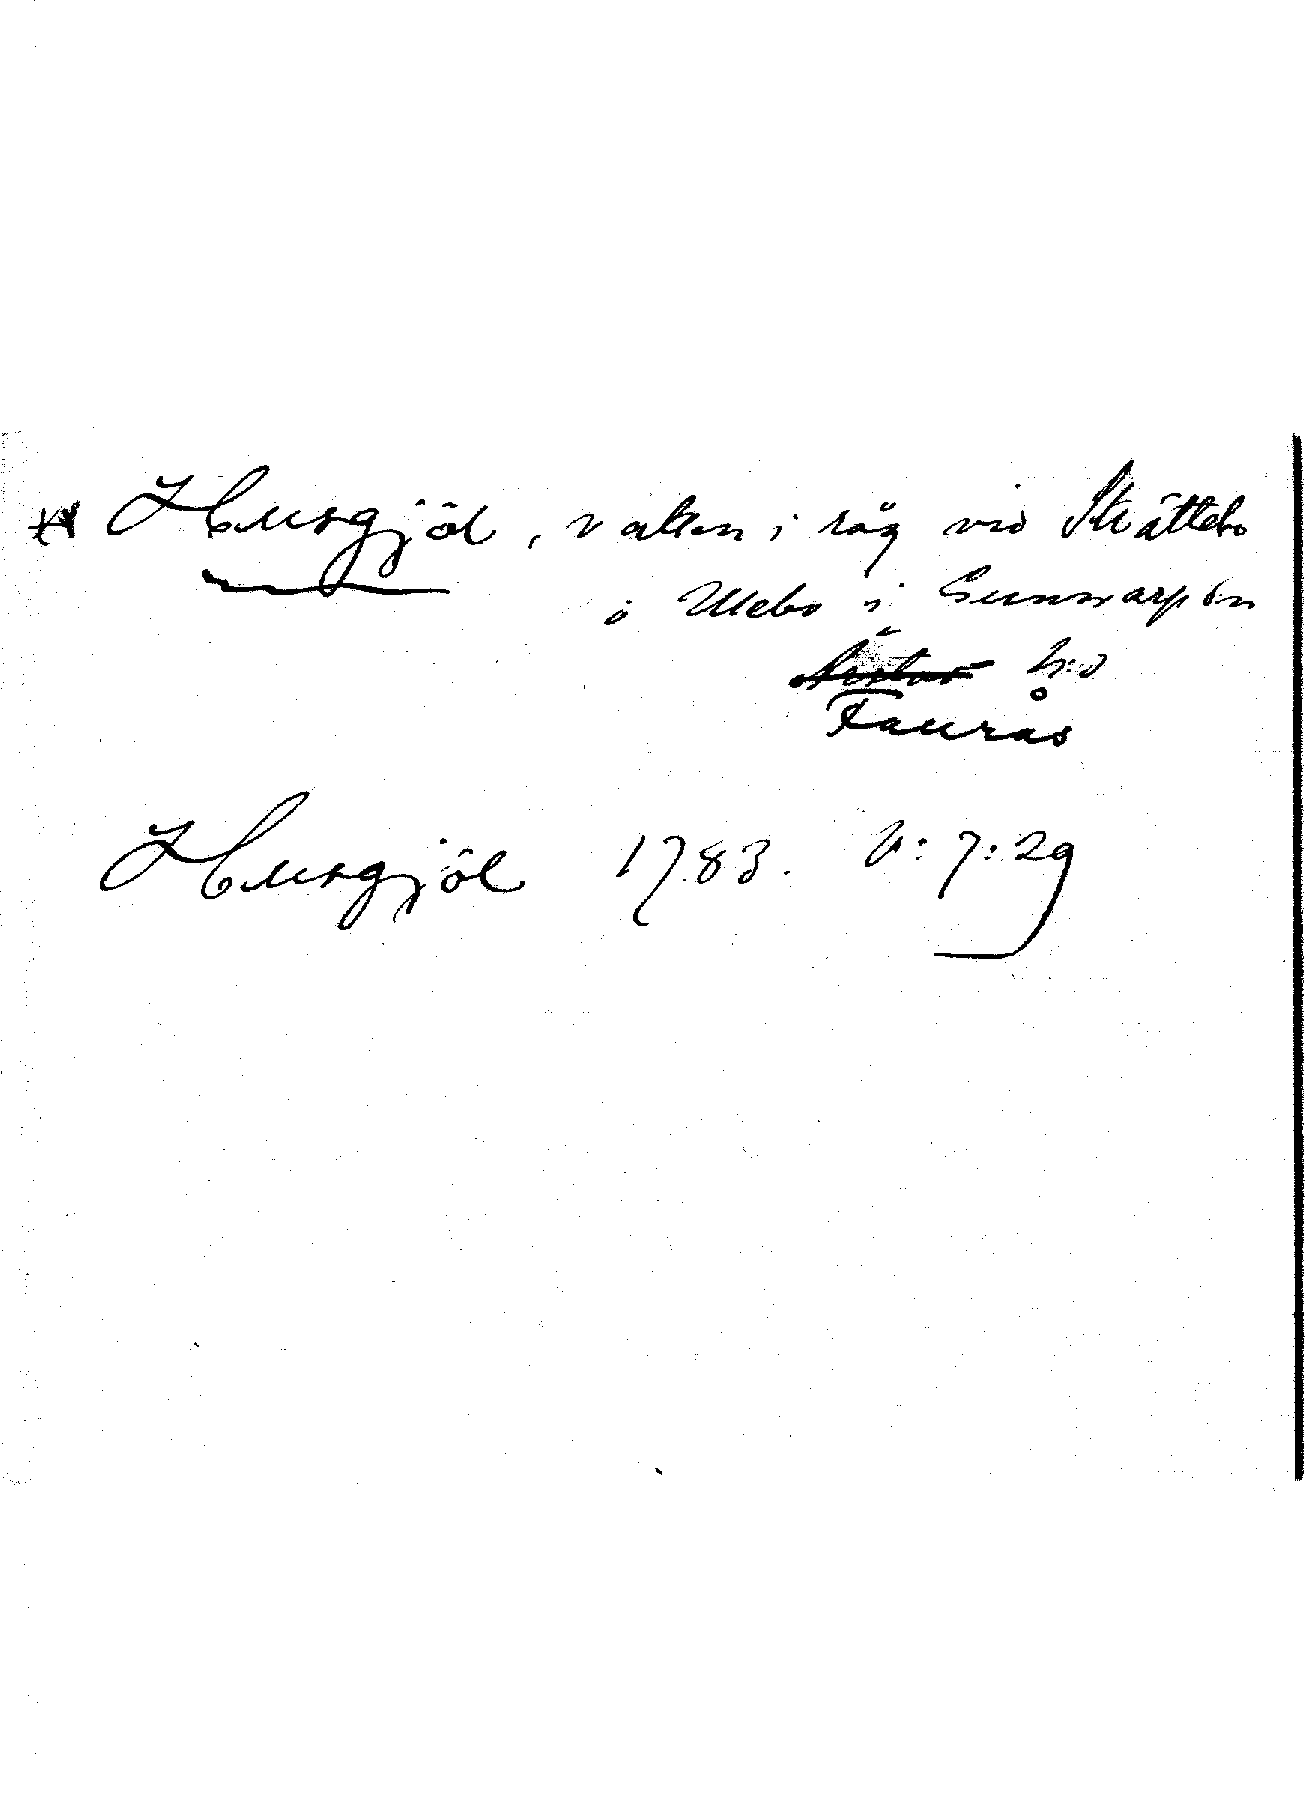 Husgjöl, vatten i råg vid Skättebo
o Ulebo i Gunnarp sn
Årstad h:d
Faurås
Husgjöl 1783. V: 7: 29